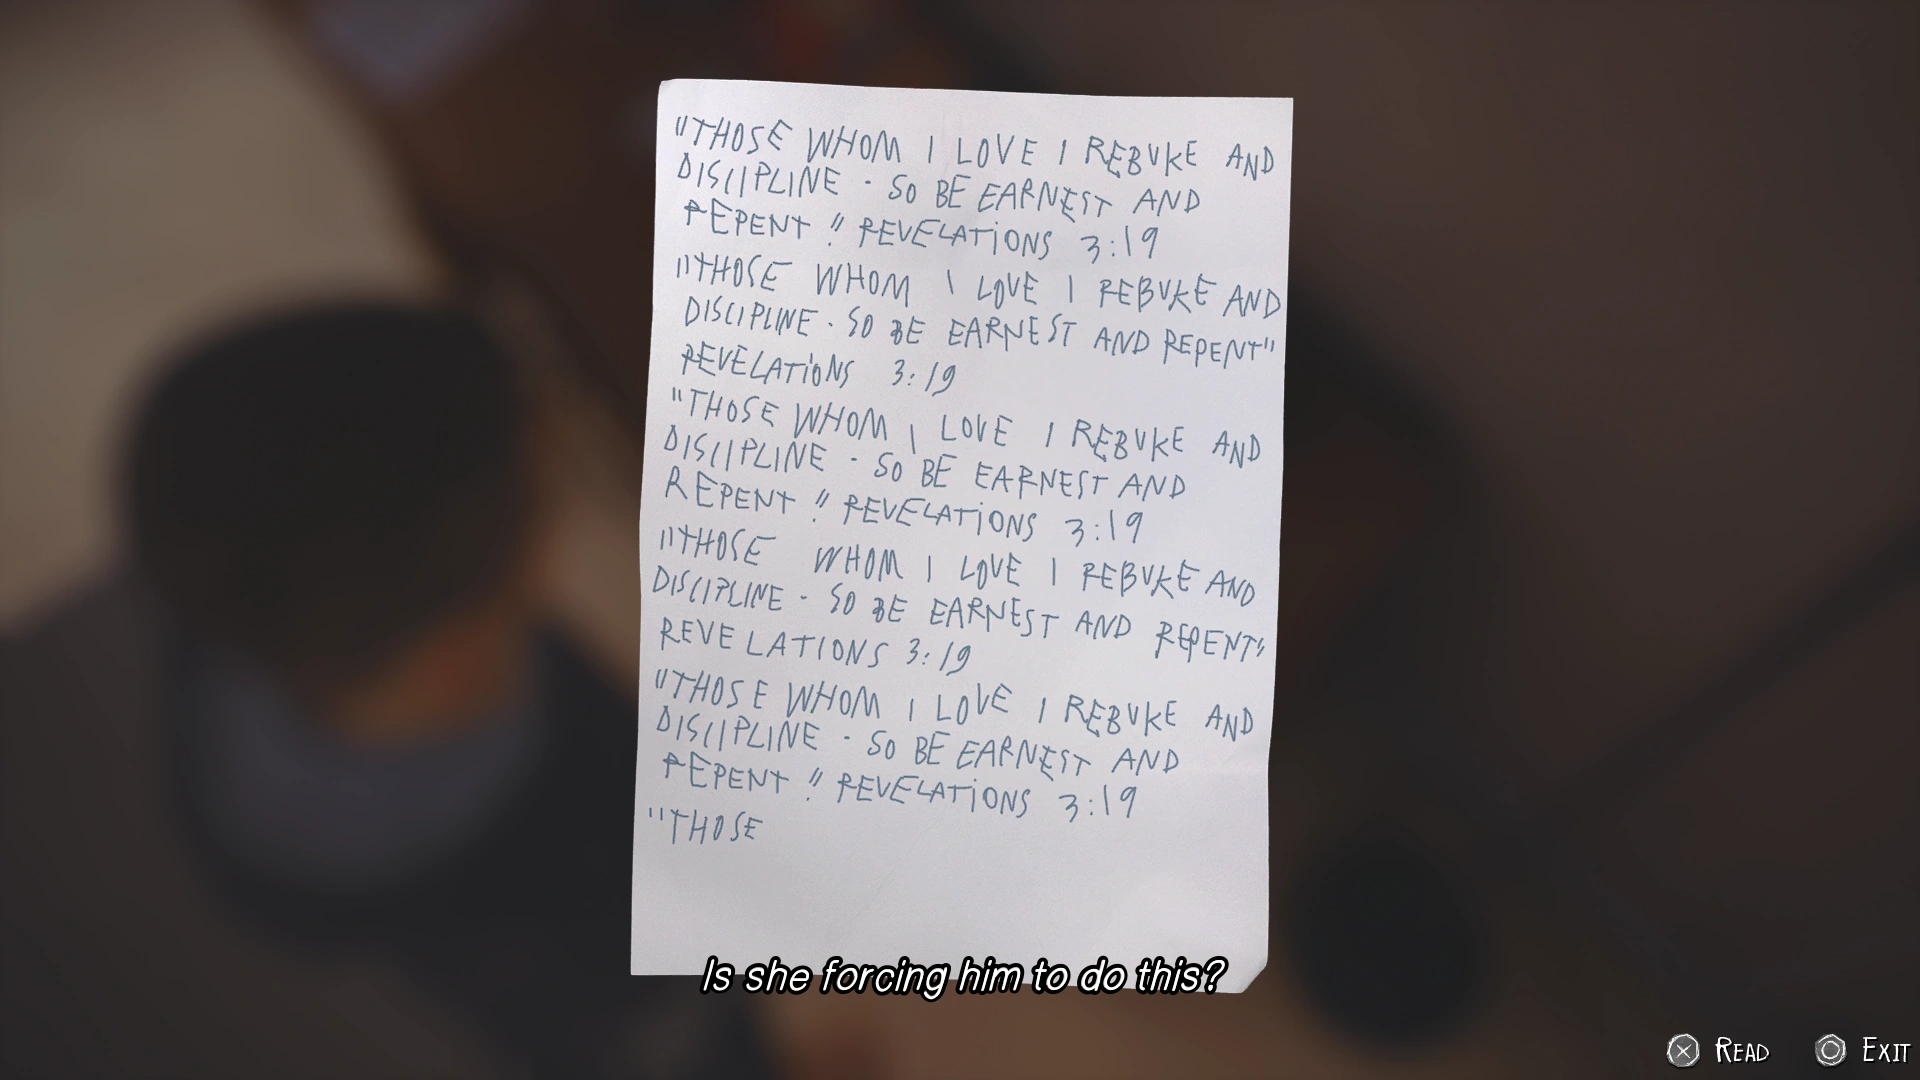 "THOSE WHOM I LOVE I REBUKE AND
DISCIPLINE - SO BE EARNEST AND
REPENT" REVELATIONS 3:19
"THOSE WHOM I LOVE I REBUKE AND
DISCIPLINE - SO BE EARNEST AND REPENT"
REVELATIONS 3:19
"THOSE WHOM I LOVE I REBUKE AND
DISCIPLINE - SO BE EARNEST AND
REPENT" REVELATIONS 3:19
"THOSE WHOM I LOVE I REBUKE AND
DISCIPLINE - SO BE EARNEST AND REPENT"
REVELATIONS 3:19
"THOSE WHOM I LOVE I REBUKE AND
DISCIPLINE - SO BE EARNEST AND
REPENT" REVELATIONS 3:19
"THOSE
Is she forcing him to do this?
READ EXIT